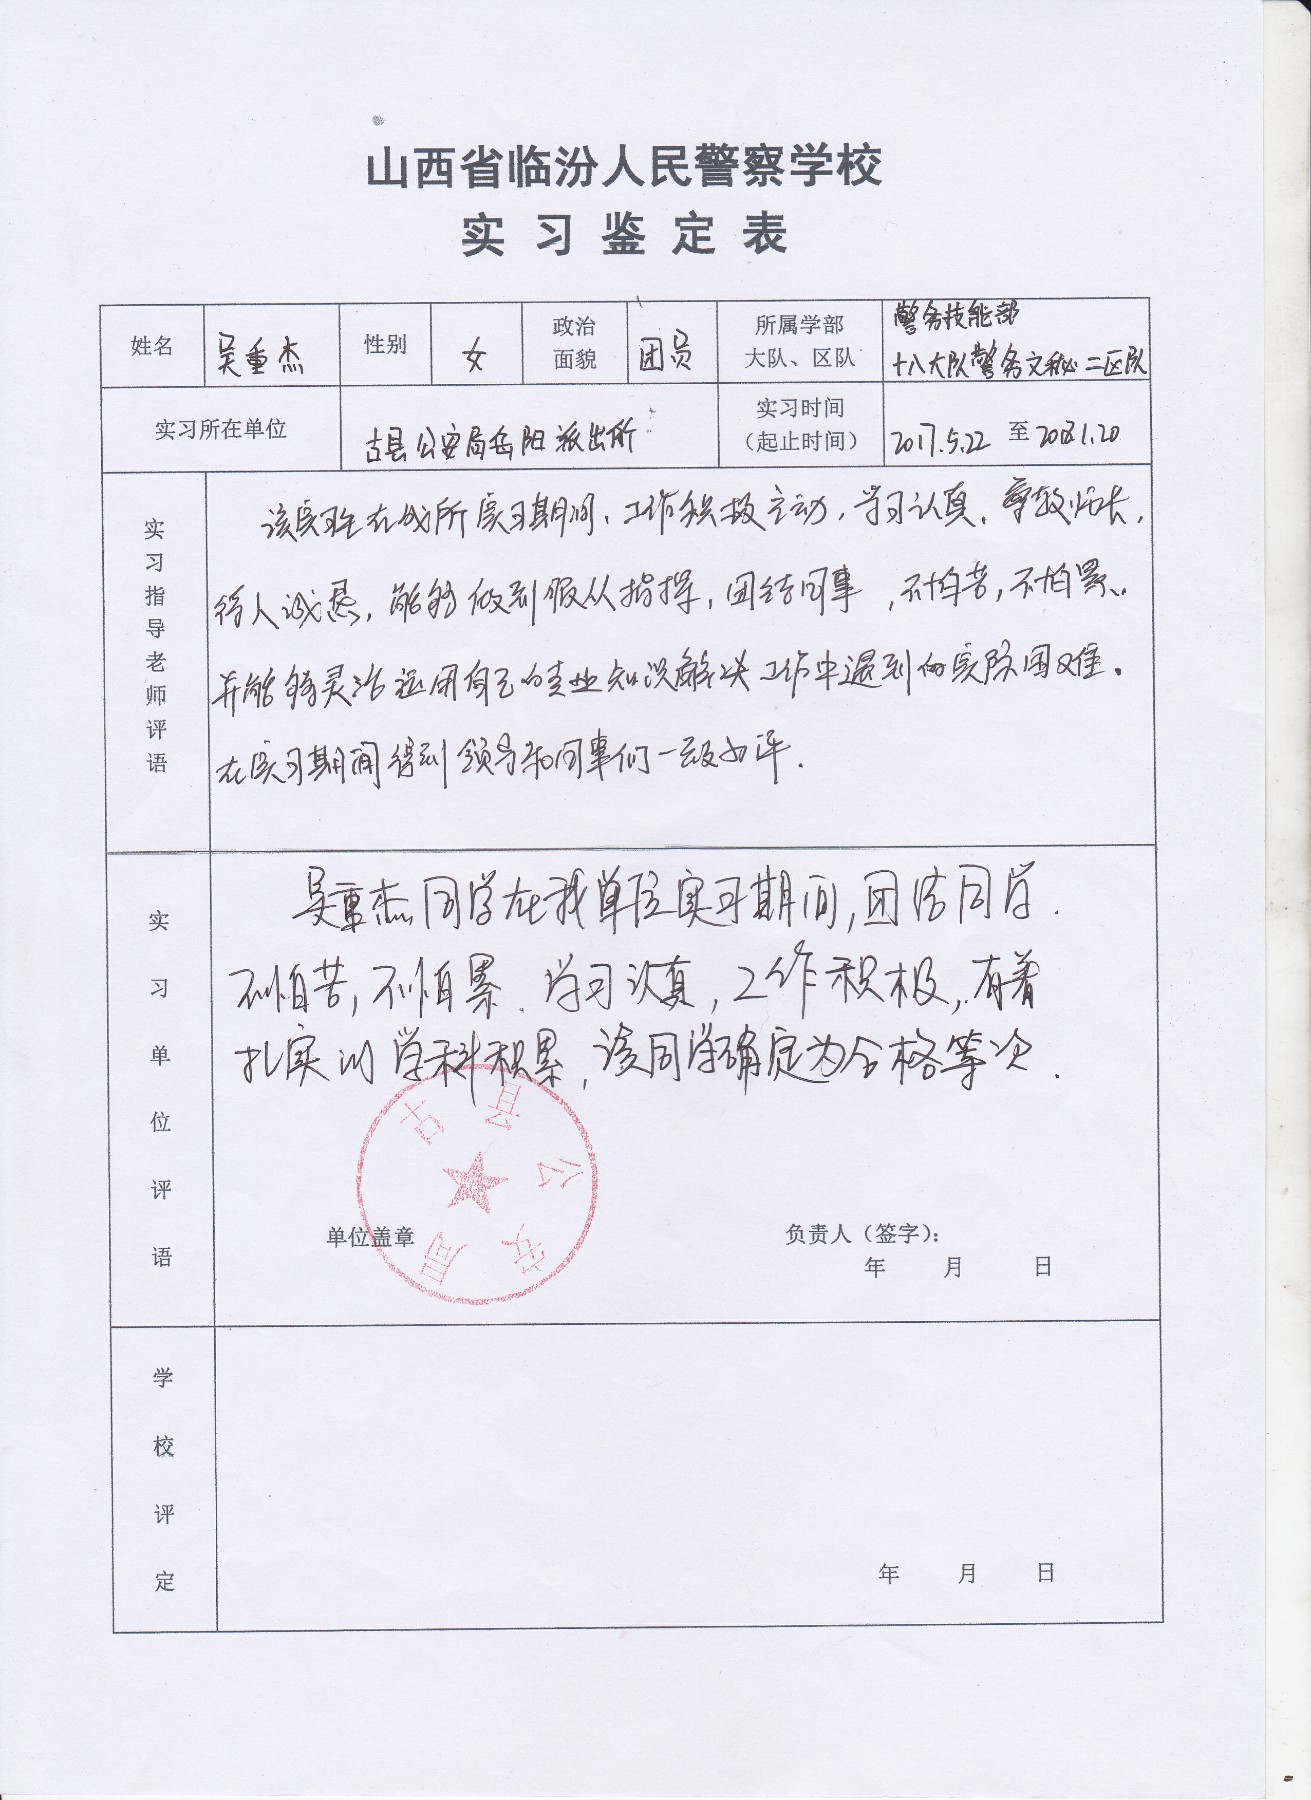 山西省临汾人民警察学校
实习鉴定表
姓名 吴重杰 性别 女 政治面貌 团员 所属学部大队、区队 警务技能部
十八大队警务文秘二区队
实习所在单位 古县公安局岳阳派出所 实习时间（起止时间） 2017.5.22 至 2018.1.20
实习指导老师评语
该实习生在我所实习期间，工作积极主动，学习认真，尊敬师长，
待人诚恳，能够做到服从指挥，团结同事，不怕苦，不怕累，
并能够灵活运用自己的专业知识解决工作中遇到的实际困难。
在实习期间得到领导和同事们一致好评.
实习单位评语
吴重杰同学在我单位实习期间，团结同学.
不怕苦，不怕累.学习认真，工作积极，有着
扎实的学科积累，该同学确定为合格等次.
古县公安局
单位盖章 负责人（签字）：
年 月 日
学校评定
年 月 日